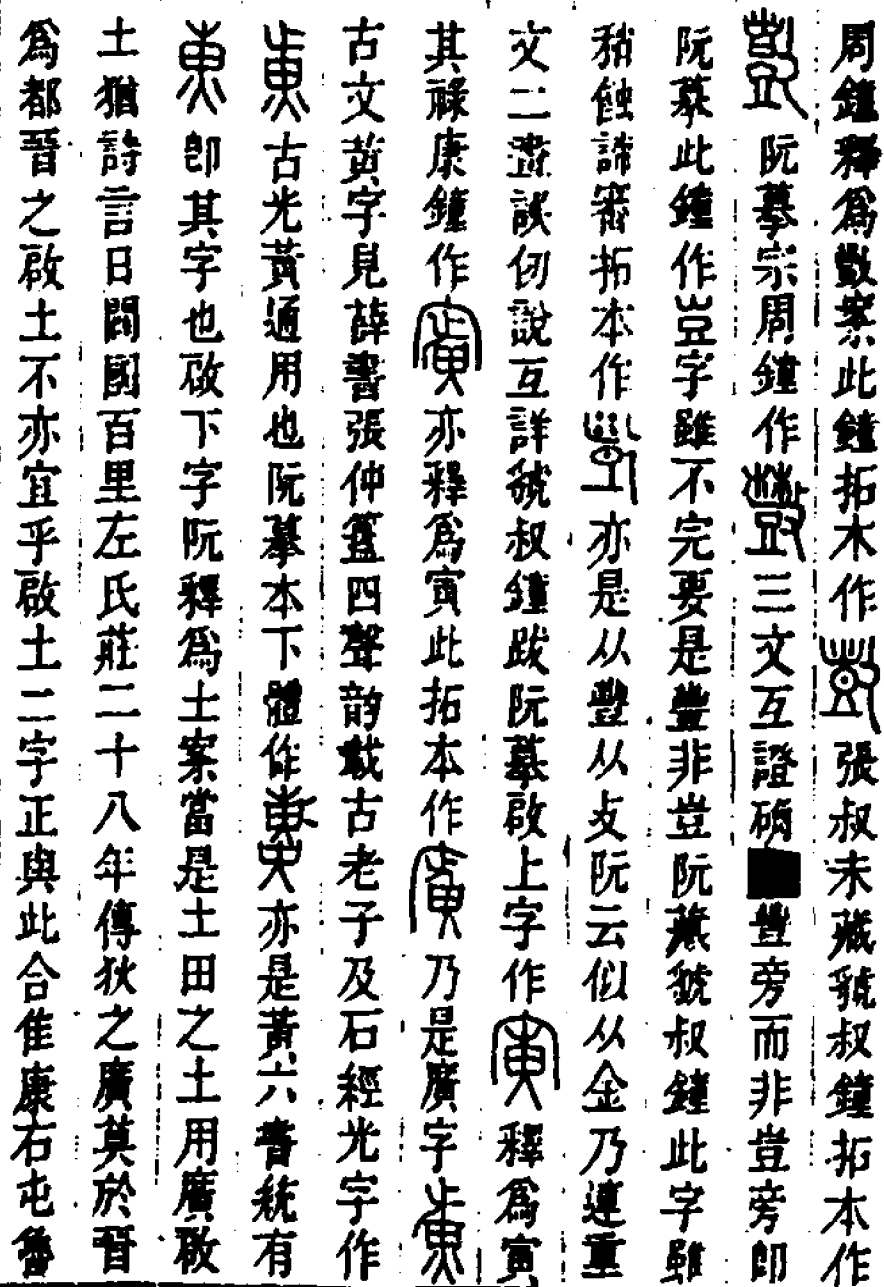 周鐘釋爲數案此鐘拓本作張叔未藏虢叔鐘拓本作
阮摹宗周鐘作三文互證确豐旁而非豈旁即
阮摹此鐘作豈字雖不完要是豐非豈阮藏虢叔鐘此字雖
稍蝕諦審拓本作亦是从豐从攴阮云似从金乃連重
文二畫誤仞說互詳虢叔鐘跋阮摹啟上字作釋爲寅
其祿康鐘作亦釋爲寅此拓本作乃是廣字
古文黃字見薛書張仲簠四聲韵載古老子及石經光字作
古光黃通用也阮摹本下體作亦是黃六書統有
即其字也啟下字阮釋爲土案當是土田之土用廣啟
土猶詩言日闢國百里左氏莊二十八年傳狄之廣莫於晉
爲都晉之啟土不亦宜乎啟土二字正與此合隹康右屯魯